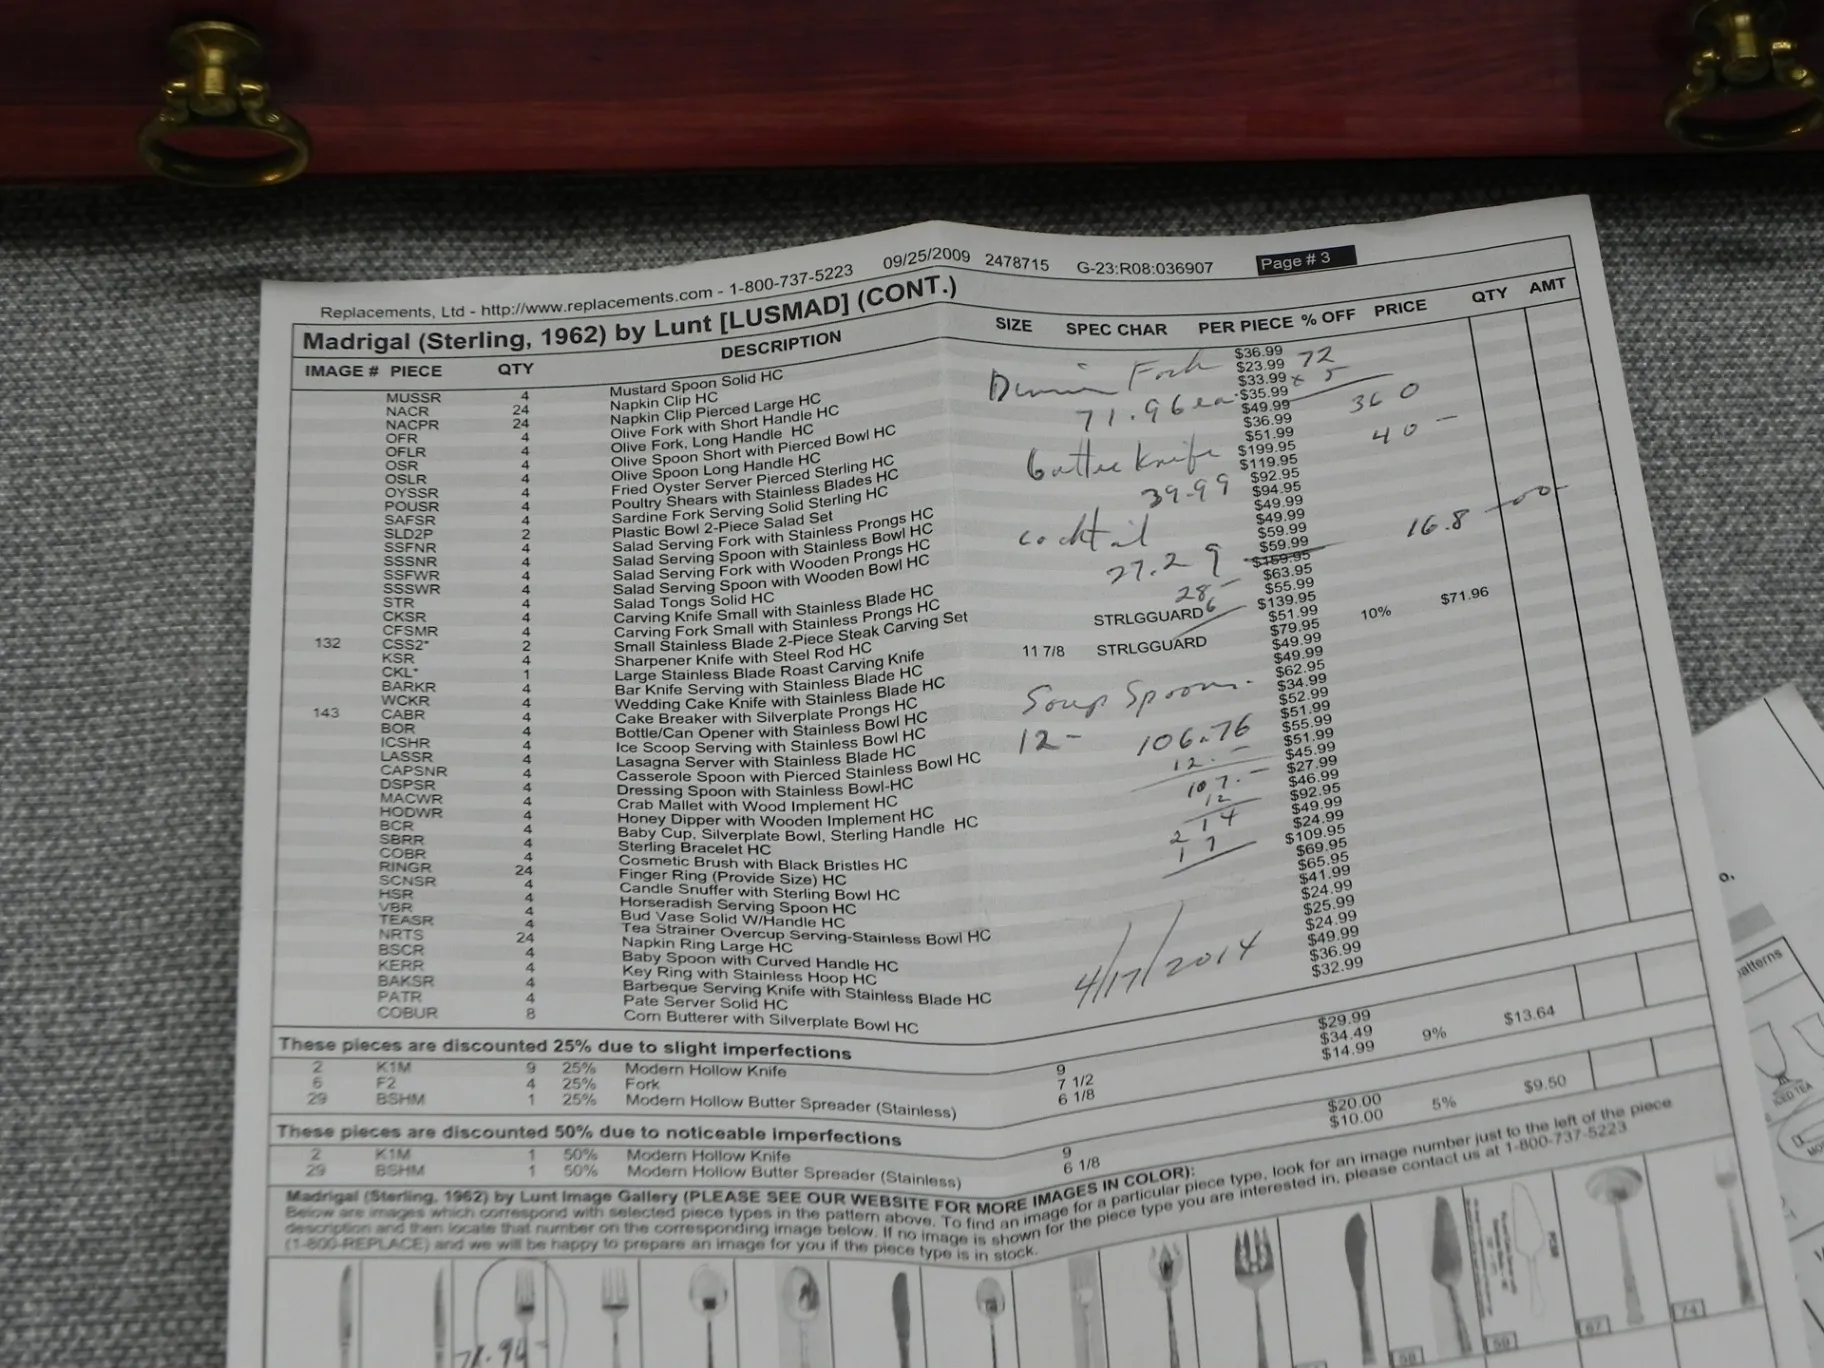 Replacements, Ltd - http://www.replacements.com - 1-800-737-5223 09/25/2009 2478715 G-23:R08:036907 Page # 3
Madrigal (Sterling, 1962) by Lunt [LUSMAD] (CONT.)
IMAGE # PIECE QTY DESCRIPTION SIZE SPEC CHAR PER PIECE % OFF PRICE QTY AMT
MUSSR 4 Mustard Spoon Solid HC $36.99
NACR 24 Napkin Clip HC $23.99
NACPR 24 Napkin Clip Pierced Large HC $33.99
OFR 4 Olive Fork with Short Handle HC $35.99
OFLR 4 Olive Fork, Long Handle HC $49.99
OSR 4 Olive Spoon Short with Pierced Bowl HC $36.99
OSLR 4 Olive Spoon Long Handle HC $51.99
OYSSR 4 Fried Oyster Server Pierced Sterling HC $199.95
POUSR 4 Poultry Shears with Stainless Blades HC $119.95
SAFSR 4 Sardine Fork Serving Solid Sterling HC $92.95
SLD2P 2 Plastic Bowl 2-Piece Salad Set $94.95
SSFNR 4 Salad Serving Fork with Stainless Prongs HC $49.99
SSSNR 4 Salad Serving Spoon with Stainless Bowl HC $49.99
SSFWR 4 Salad Serving Fork with Wooden Prongs HC $59.99
SSSWR 4 Salad Serving Spoon with Wooden Bowl HC $59.99
STR 4 Salad Tongs Solid HC $159.95
CKSR 4 Carving Knife Small with Stainless Blade HC $63.95
CFSMR 4 Carving Fork Small with Stainless Prongs HC $55.99
132 CSS2* 2 Small Stainless Blade 2-Piece Steak Carving Set STRLGGUARD $139.95
KSR 4 Sharpener Knife with Steel Rod HC $51.99
CKL* 1 Large Stainless Blade Roast Carving Knife 11 7/8 STRLGGUARD $79.95 10% $71.96
BARKR 4 Bar Knife Serving with Stainless Blade HC $49.99
WCKR 4 Wedding Cake Knife with Stainless Blade HC $49.99
143 CABR 4 Cake Breaker with Silverplate Prongs HC $62.95
BOR 4 Bottle/Can Opener with Stainless Bowl HC $34.99
ICSHR 4 Ice Scoop Serving with Stainless Bowl HC $52.99
LASSR 4 Lasagna Server with Stainless Blade HC $51.99
CAPSNR 4 Casserole Spoon with Pierced Stainless Bowl HC $55.99
DSPSR 4 Dressing Spoon with Stainless Bowl-HC $51.99
MACWR 4 Crab Mallet with Wood Implement HC $45.99
HODWR 4 Honey Dipper with Wooden Implement HC $27.99
BCR 4 Baby Cup, Silverplate Bowl, Sterling Handle HC $46.99
SBRR 4 Sterling Bracelet HC $92.95
COBR 4 Cosmetic Brush with Black Bristles HC $49.99
RINGR 24 Finger Ring (Provide Size) HC $24.99
SCNSR 4 Candle Snuffer with Sterling Bowl HC $109.95
HSR 4 Horseradish Serving Spoon HC $69.95
VBR 4 Bud Vase Solid W/Handle HC $65.95
TEASR 4 Tea Strainer Overcup Serving-Stainless Bowl HC $41.99
NRTS 24 Napkin Ring Large HC $24.99
BSCR 4 Baby Spoon with Curved Handle HC $25.99
KERR 4 Key Ring with Stainless Hoop HC $24.99
BAKSR 4 Barbeque Serving Knife with Stainless Blade HC $49.99
PATR 4 Pate Server Solid HC $36.99
COBUR 8 Corn Butterer with Silverplate Bowl HC $32.99
Fork 72
71.96 ea x 5
360
butter Knife 40 -
39.99
cocktail
27.29 16.8
28-
6
Soup Spoons.
12- 106.76
12
107.-
12
214
17
4/17/2014
These pieces are discounted 25% due to slight imperfections
2 K1M 9 25% Modern Hollow Knife 9 $29.99
6 F2 4 25% Fork 7 1/2 $34.49
29 BSHM 1 25% Modern Hollow Butter Spreader (Stainless) 6 1/8 $14.99 9% $13.64
These pieces are discounted 50% due to noticeable imperfections
2 K1M 1 50% Modern Hollow Knife 9 $20.00
29 BSHM 1 50% Modern Hollow Butter Spreader (Stainless) 6 1/8 $10.00 5% $9.50
Madrigal (Sterling, 1962) by Lunt Image Gallery (PLEASE SEE OUR WEBSITE FOR MORE IMAGES IN COLOR):
Below are images which correspond with selected piece types in the pattern above. To find an image for a particular piece type, look for an image number just to the left of the piece
description and then locate that number on the corresponding image below. If no image is shown for the piece type you are interested in, please contact us at 1-800-737-5223
(1-800-REPLACE) and we will be happy to prepare an image for you if the piece type is in stock.
71.96
58
59
67
74
atterns
ICED TEA